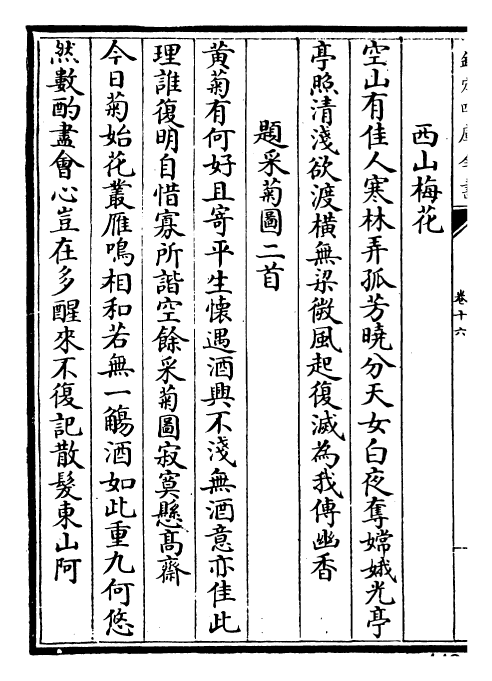 欽定四庫全書
卷十六
西山梅花
空山有佳人寒林弄孤芳曉分天女白夜奪嫦娥光亭
亭照清淺欲渡橫無梁微風起復滅為我傳幽香
題采菊圖二首
黃菊有何好且寄平生懷遇酒興不淺無酒意亦佳此
理誰復明自惜寡所諧空餘采菊圖寂寞懸高齋
今日菊始花叢雁鳴相和若無一觴酒如此重九何悠
然數酌盡會心豈在多醒來不復記散髮東山阿